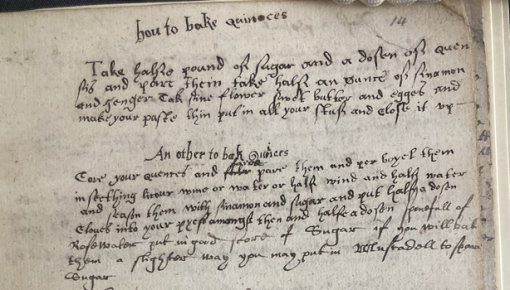 hou to bake quinces
14
Take halfe pound of sugar and a dosen of quen
sis and pare them take half an ounce of sinamon
and genger Tak fine flower swet butter and egges and
make your paste thin put in all your stuf and close it up
An other to bak Quinces
Core your quences and pare them and per boyel them
in seething licour wine or water or half wind and half water
and season them with sinamon and sugar and put halfe a dosen
Cloues into your pyes amongst then and halfe a dosen spoonfull of
Rose water put in good store of Sugar if you will bak
them a slighter way you may put in Muscadell to spare
Sugar